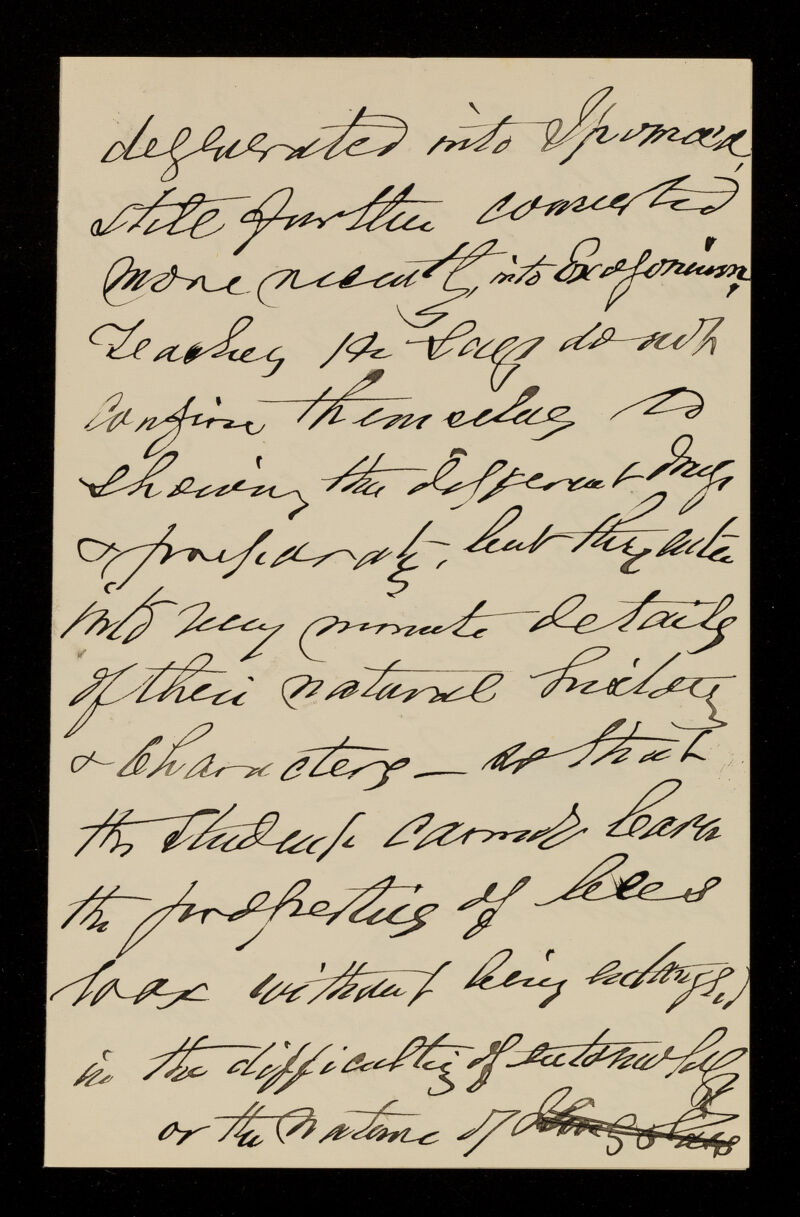 degenerated into Ipomœa,
still further converted
more recently, into Exogonium.
Teachers do not
confine themselves to
showing the different drugs
& preparats, but they enter
into very minute details
of their natural history
& characters – so that
the student cannot learn
the properties of bees
wax without being entangled
in the difficulties of entomology
or the nature of